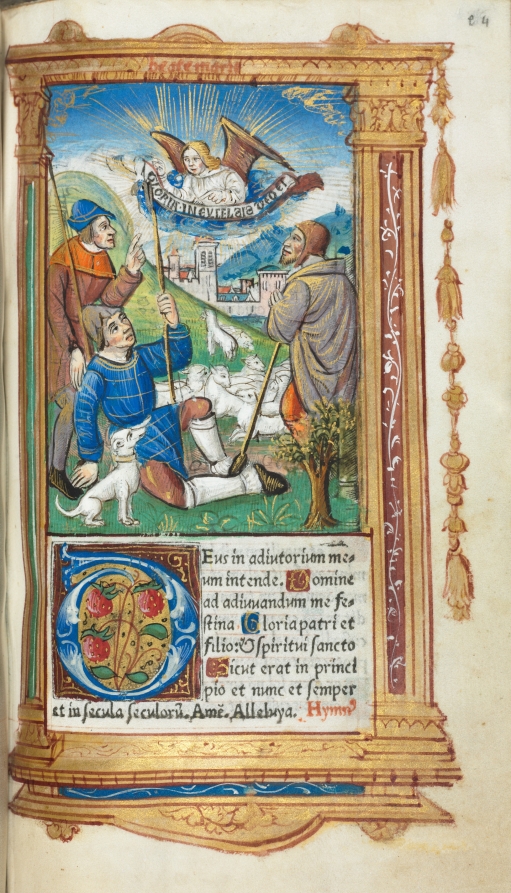 24
GLORIA IN EXCELSIS DEO ET
Deus in adiutorium me-
um intende. Domine
ad adiuuandum me fe-
stina Gloria patri et
filio: & spiritui sancto
Sicut erat in princi
pio et nunc et semper
et in secula seculorū. Amē. Alleluya. Hymnꝰ